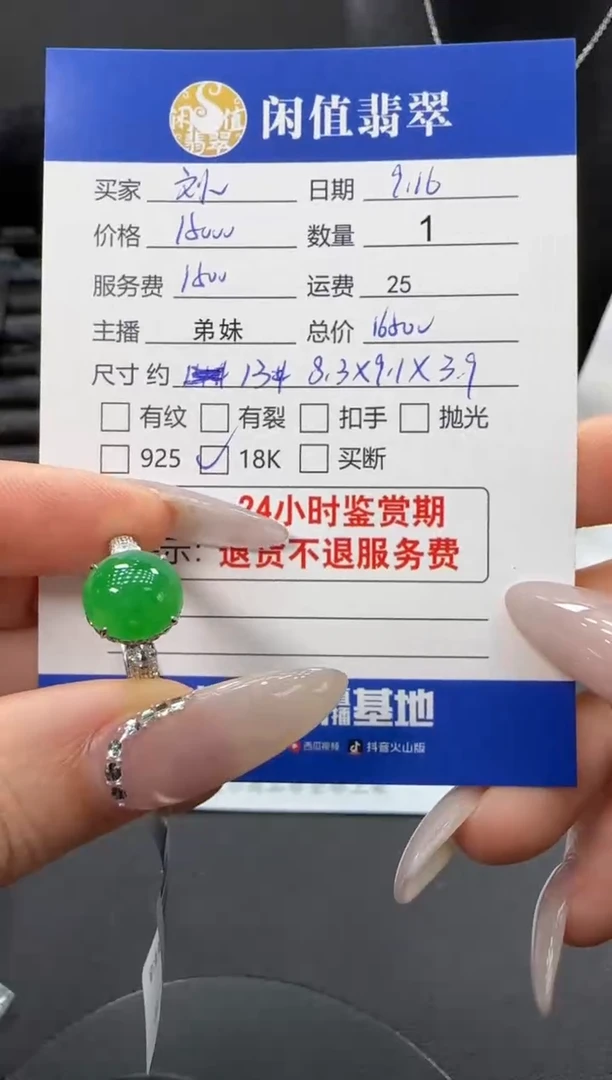 闲值翡翠
闲值
翡翠
买家 刘 日期 9.16
价格 15000 数量 1
服务费 1500 运费 25
主播 弟妹 总价 16500
尺寸 约 13# 8.3X9.1X3.9
有纹 有裂 扣手 抛光
925 18K 买断
24小时鉴赏期
示: 退货不退服务费
播基地
西瓜视频 抖音火山版